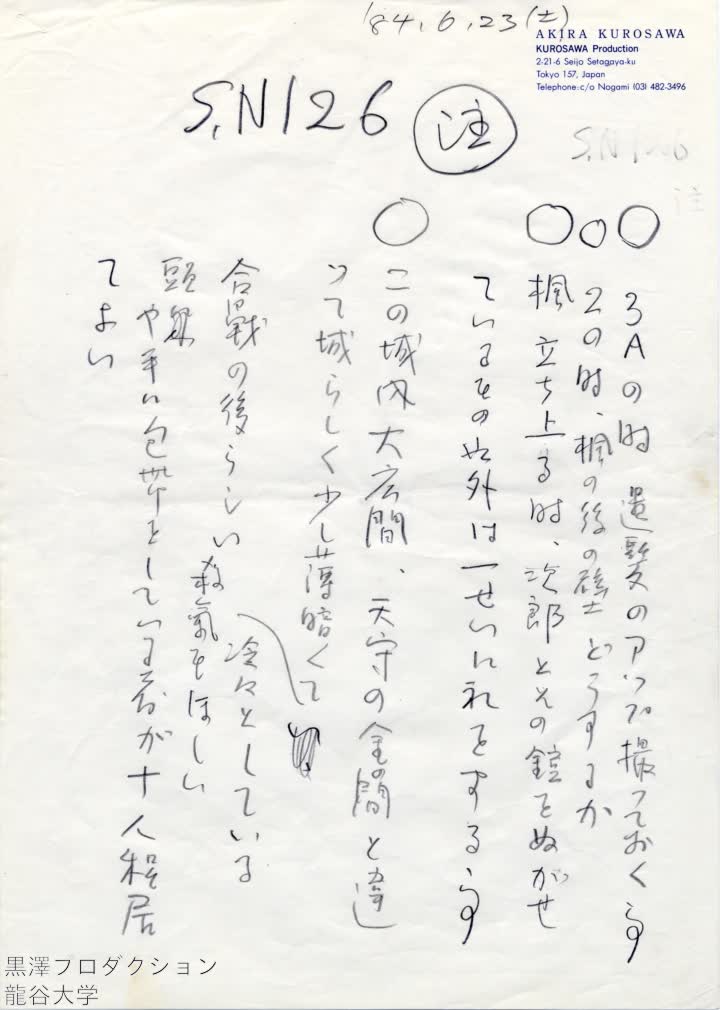 '84.6.23(土)
AKIRA KUROSAWA
KUROSAWA Production
2-21-6 Seijo Setagaya-ku
Tokyo 157, Japan
Telephone:c/o Nogami (03) 482-3496
S,N126 注
S,N126
注
○ 3Aの時 遺髪のアップ撮っておく事
○ 2の時、楓の後の壁どうするか
○ 楓 立ち上る時、次郎とその鎧をぬがせ
ているもの以外は一せいに礼をする事
○ この城内大広間、天守の金の間と違
って城らしく少し薄暗くて
冷々としている
合戦の後らしい殺氣もほしい
頭や手に包帯をしている者が十人程居
てよい
黒澤プロダクション
龍谷大学